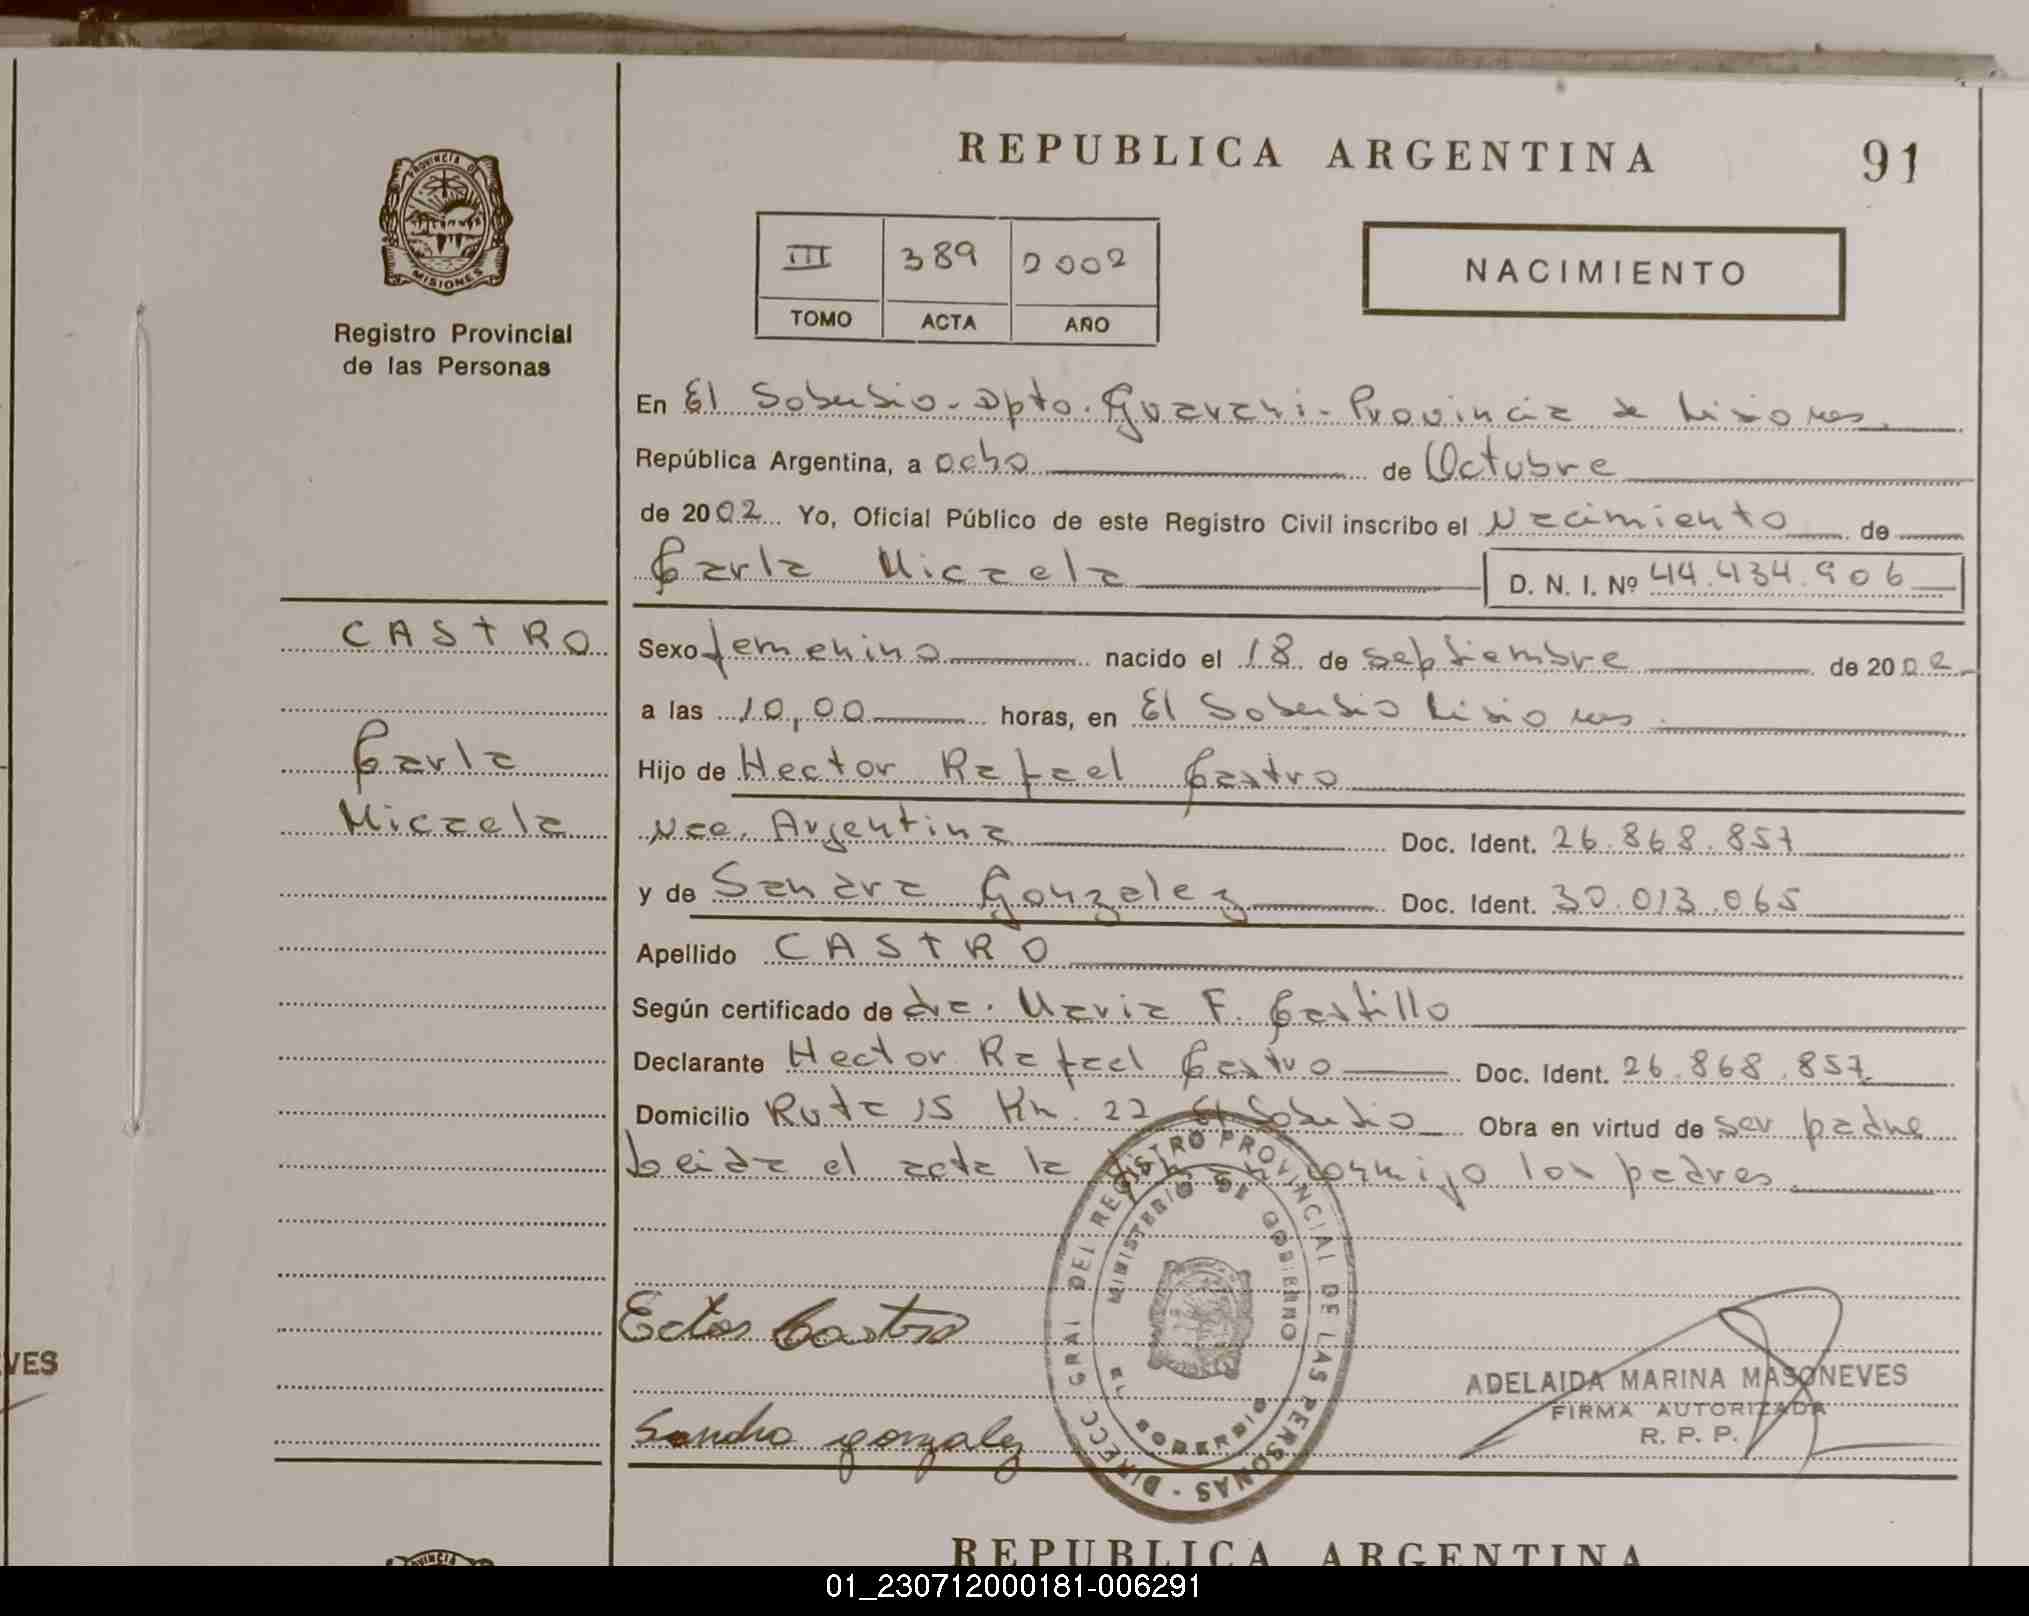 REPUBLICA ARGENTINA 91
PROVINCIA D MISIONES
Registro Provincial
de las Personas
III 389 2002
TOMO ACTA AÑO
NACIMIENTO
En El Soberbio - Dpto. Guarani - Provincia de Misiones
República Argentina, a ocho de Octubre
de 2002 Yo, Oficial Público de este Registro Civil inscribo el Nacimiento de
Carla Micaela D. N. I. Nº 44.434.906
CASTRO
Carla
Micaela
Sexo femenino nacido el 18 de septiembre de 2002
a las 10,00 horas, en El Soberbio Misiones
Hijo de Hector Rafael Castro
Nac. Argentina Doc. Ident. 26.868.857
y de Sandra Gonzalez Doc. Ident. 30.013.065
Apellido CASTRO
Según certificado de dra. Maria F. Castillo
Declarante Hector Rafael Castro Doc. Ident. 26.868.857
Domicilio Ruta 15 Km. 22 El Soberbio Obra en virtud de ser padre
Leida el acta la conmigo los padres
DIRECC. GRAL DEL REGISTRO PROVINCIAL DE LAS PERSONAS -
MINISTERIO DE GOBIERNO
EL SOBERBIO
Ector Castro
Sandra gonzalez
ADELAIDA MARINA MASONEVES
FIRMA AUTORIZADA
R. P. P.
VES
REPUBLICA ARGENTINA
01_230712000181-006291